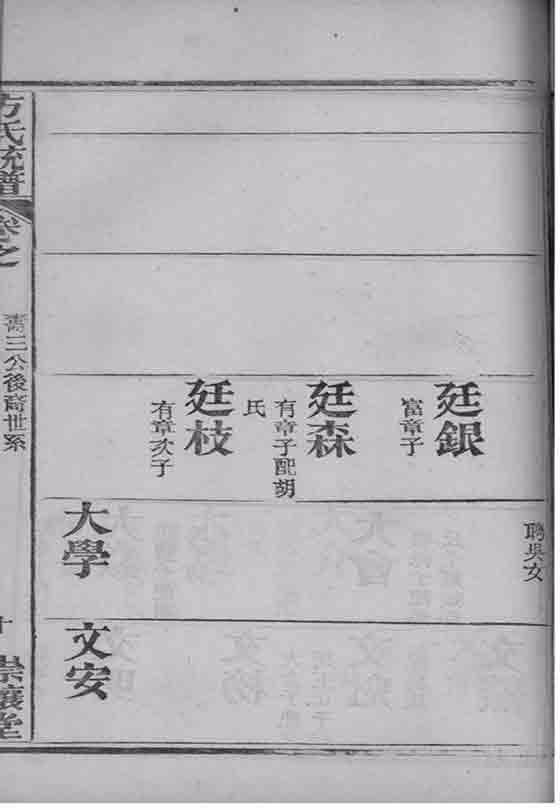 廷銀
富章子
廷森
有章子配胡
氏
廷枝
有章次子
聘吳女
大學
文安
方氏統譜
卷之
壽三公後裔世系
十
崇讓堂